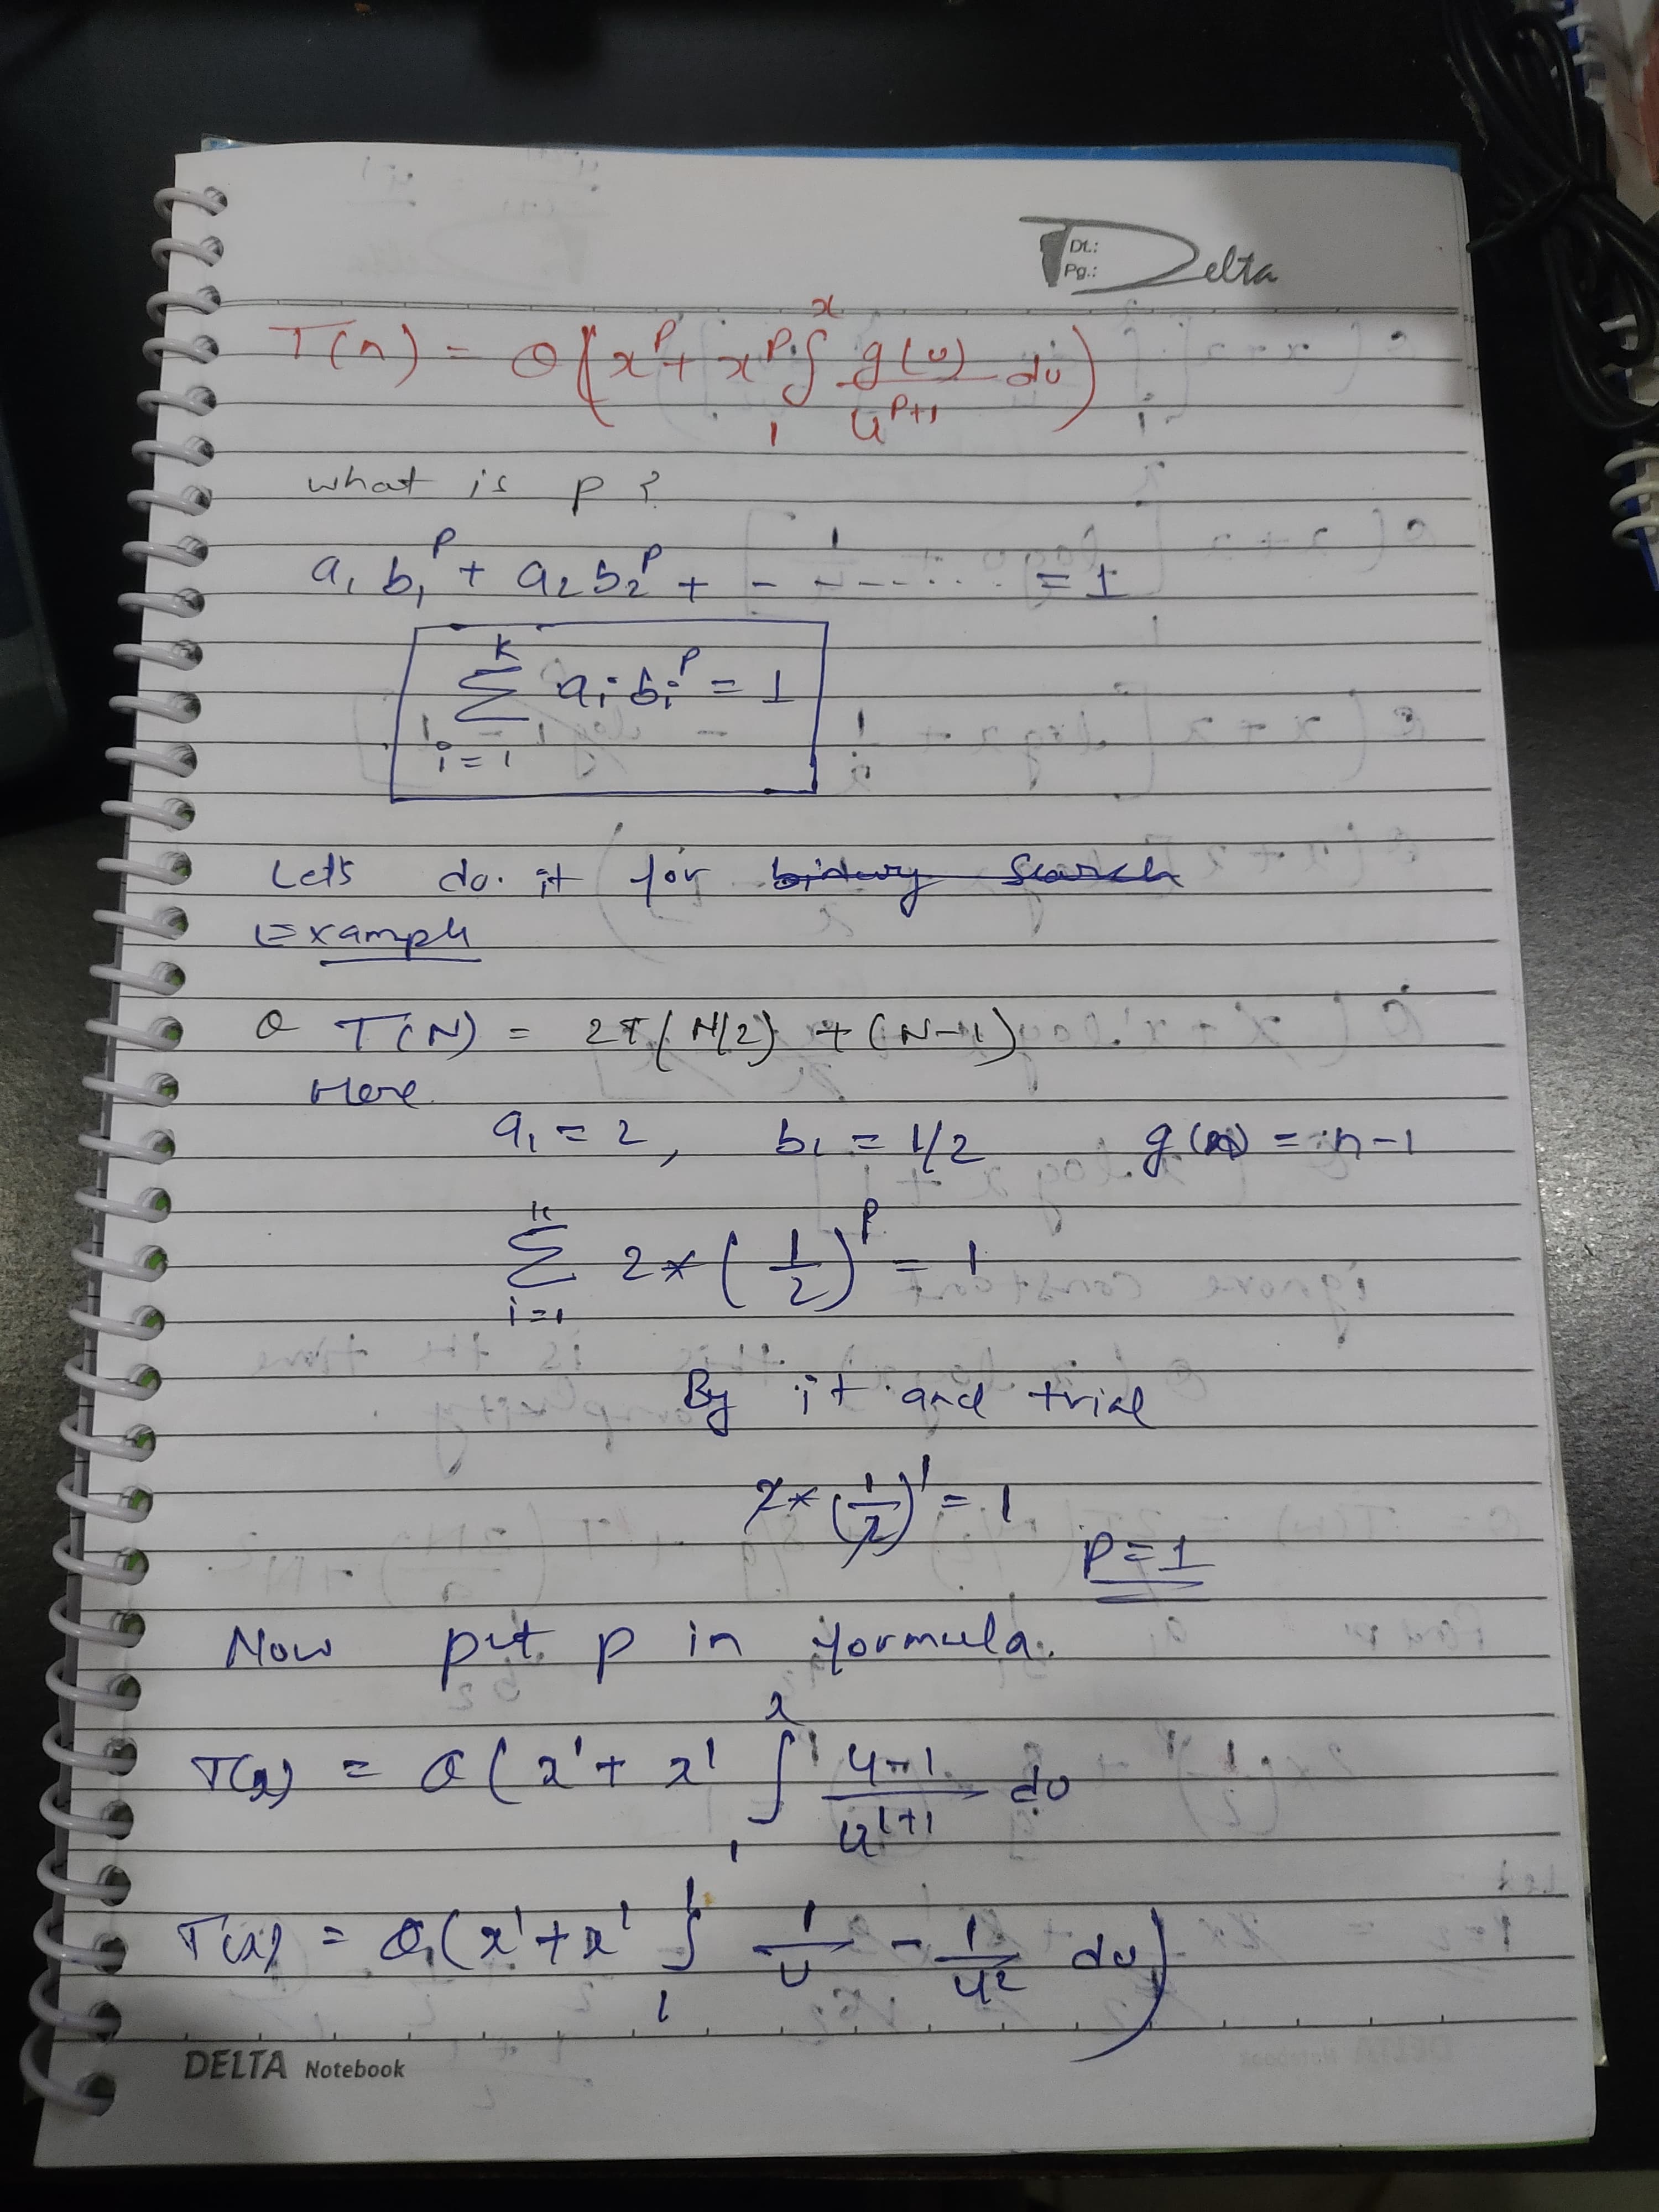 Dt.:
Pg.:
Delta
T(n) = Θ(x^p + x^p ∫_1^x g(u)/u^{p+1} du)
what is p?
a₁ b₁^p + a₂ b₂^p + - - - ..... = 1
∑_{i=1}^k aᵢ bᵢ^p = 1
Lets do it for binary search
Example
Θ T(N) = 2T(N/2) + (N-1)
Here
a₁ = 2, b₁ = 1/2 g(n) = n-1
∑_{i=1}^k 2 * (1/2)^p = 1
By it and trial
2 * (1/2)^1 = 1
P=1
Now put p in formula.
T(x) = Θ(x^1 + x^1 ∫_1^x (u-1)/u^{1+1} du
T(x) = Θ(x^1 + x^1 ∫_1 1/u - 1/u² du)
DELTA Notebook